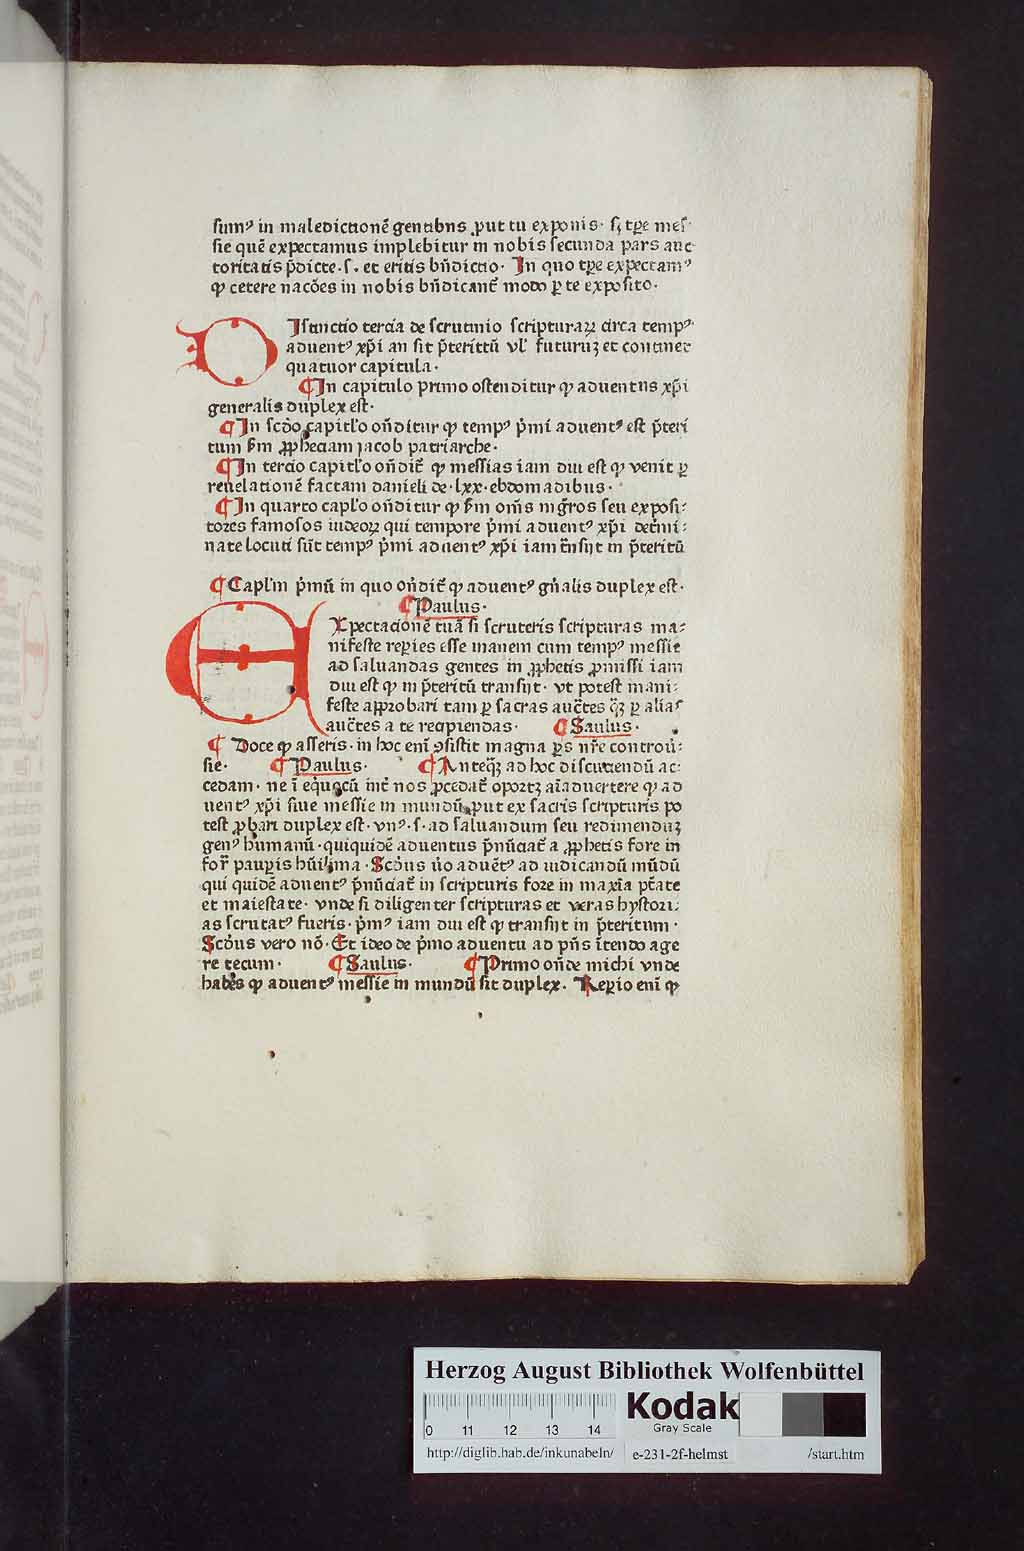 sumꝰ in maledictionē gentibus ꝓut tu exponis· sꝫ tp̄re mes-
sie quē expectamus implebitur in nobis secunda pars auc-
toritatis p̄dicte·s· et eritis bn̄dictio· In quo tp̄re expectamꝰ
ꝙ cetere nacōes in nobis bn̄dicant̄ modo ꝑ te exposito·
DIstinctio tercia de scrutinio scripturaꝝ circa tempꝰ
aduentꝰ xp̄i an sit p̄teritū vl' futuruꝫ et continet
quatuor capitula·
¶In capitulo primo ostenditur ꝙ aduentus xp̄i
generalis duplex est·
¶In scd̄o capitl'o on̄ditur ꝙ tempꝰ p̄mi aduentꝰ est p̄teri
tum s̄m ꝓpheciam jacob patriarche·
¶In tercio capitl'o on̄dit̄ ꝙ messias iam diu est ꝙ venit ꝑ
reuelationē factam danieli de·lxx·ebdomadibus·
¶In quarto capl'o on̄ditur ꝙ s̄m om̄s mḡros seu exposi-
tores famosos iudeoꝝ qui tempore p̄mi aduentꝰ xp̄i det̄mi-
nate locuti sūt tempꝰ p̄mi aduentꝰ xp̄i iam t̄nsijt in p̄teritū
¶Capl'm p̄mū in quo on̄dit̄ ꝙ aduentꝰ gn̄alis duplex est·
¶Paulus·
EXpectacionē tuā si scruteris scripturas ma-
nifeste reꝑies esse inanem cum tempꝰ messie
ad saluandas gentes in ꝓphetis ꝓmissi iam
diu est ꝙ in p̄teritū transijt· vt potest mani-
feste approbari tam ꝑ sacras auct̄es qꝫ̄ ꝑ alias
auct̄es a te recipiendas· ¶Saulus·
¶Doce ꝙ asseris·in hoc enī ꝯsistit magna ꝑs nr̄e controū-
sie· ¶Paulus· ¶Anteqꝫ̄ ad hoc discutiendū ac-
cedam· ne ī equocū int̄ nos ꝓcedat̄ oportꝫ aīaduertere ꝙ ad
uentꝰ xp̄i siue messie in mundū ꝓut ex sacris scripturis po
test ꝓbari duplex est·vnꝰ·s·ad saluandum seu redimenduꝫ
genꝰ humanū·quiquidē aduentus p̄nūciat̄ a ꝓphetis fore in
for̄ pauꝑis hūil'ima·Scd̄us v̄o aduētꝰ ad iudicandū mūdū
qui quidē aduentꝰ p̄nūciat̄ in scripturis fore in maxīa pt̄ate
et maiestate· vnde si diligenter scripturas et veras hystori-
as scrutatꝰ fueris·p̄mꝰ iam diu est ꝙ transijt in p̄teritum·
Scd̄us vero nō·Et ideo de p̄mo aduentu ad pn̄s ītendo age
re tecum· ¶Saulus· ¶Primo on̄de michi vnde
habes ꝙ aduentꝰ messie in mundū sit duplex. Reꝑio enī ꝙ
Herzog August Bibliothek Wolfenbüttel
0 11 12 13 14
Kodak
Gray Scale
http://diglib.hab.de/inkunabeln/ e-231-2f-helmst /start.htm